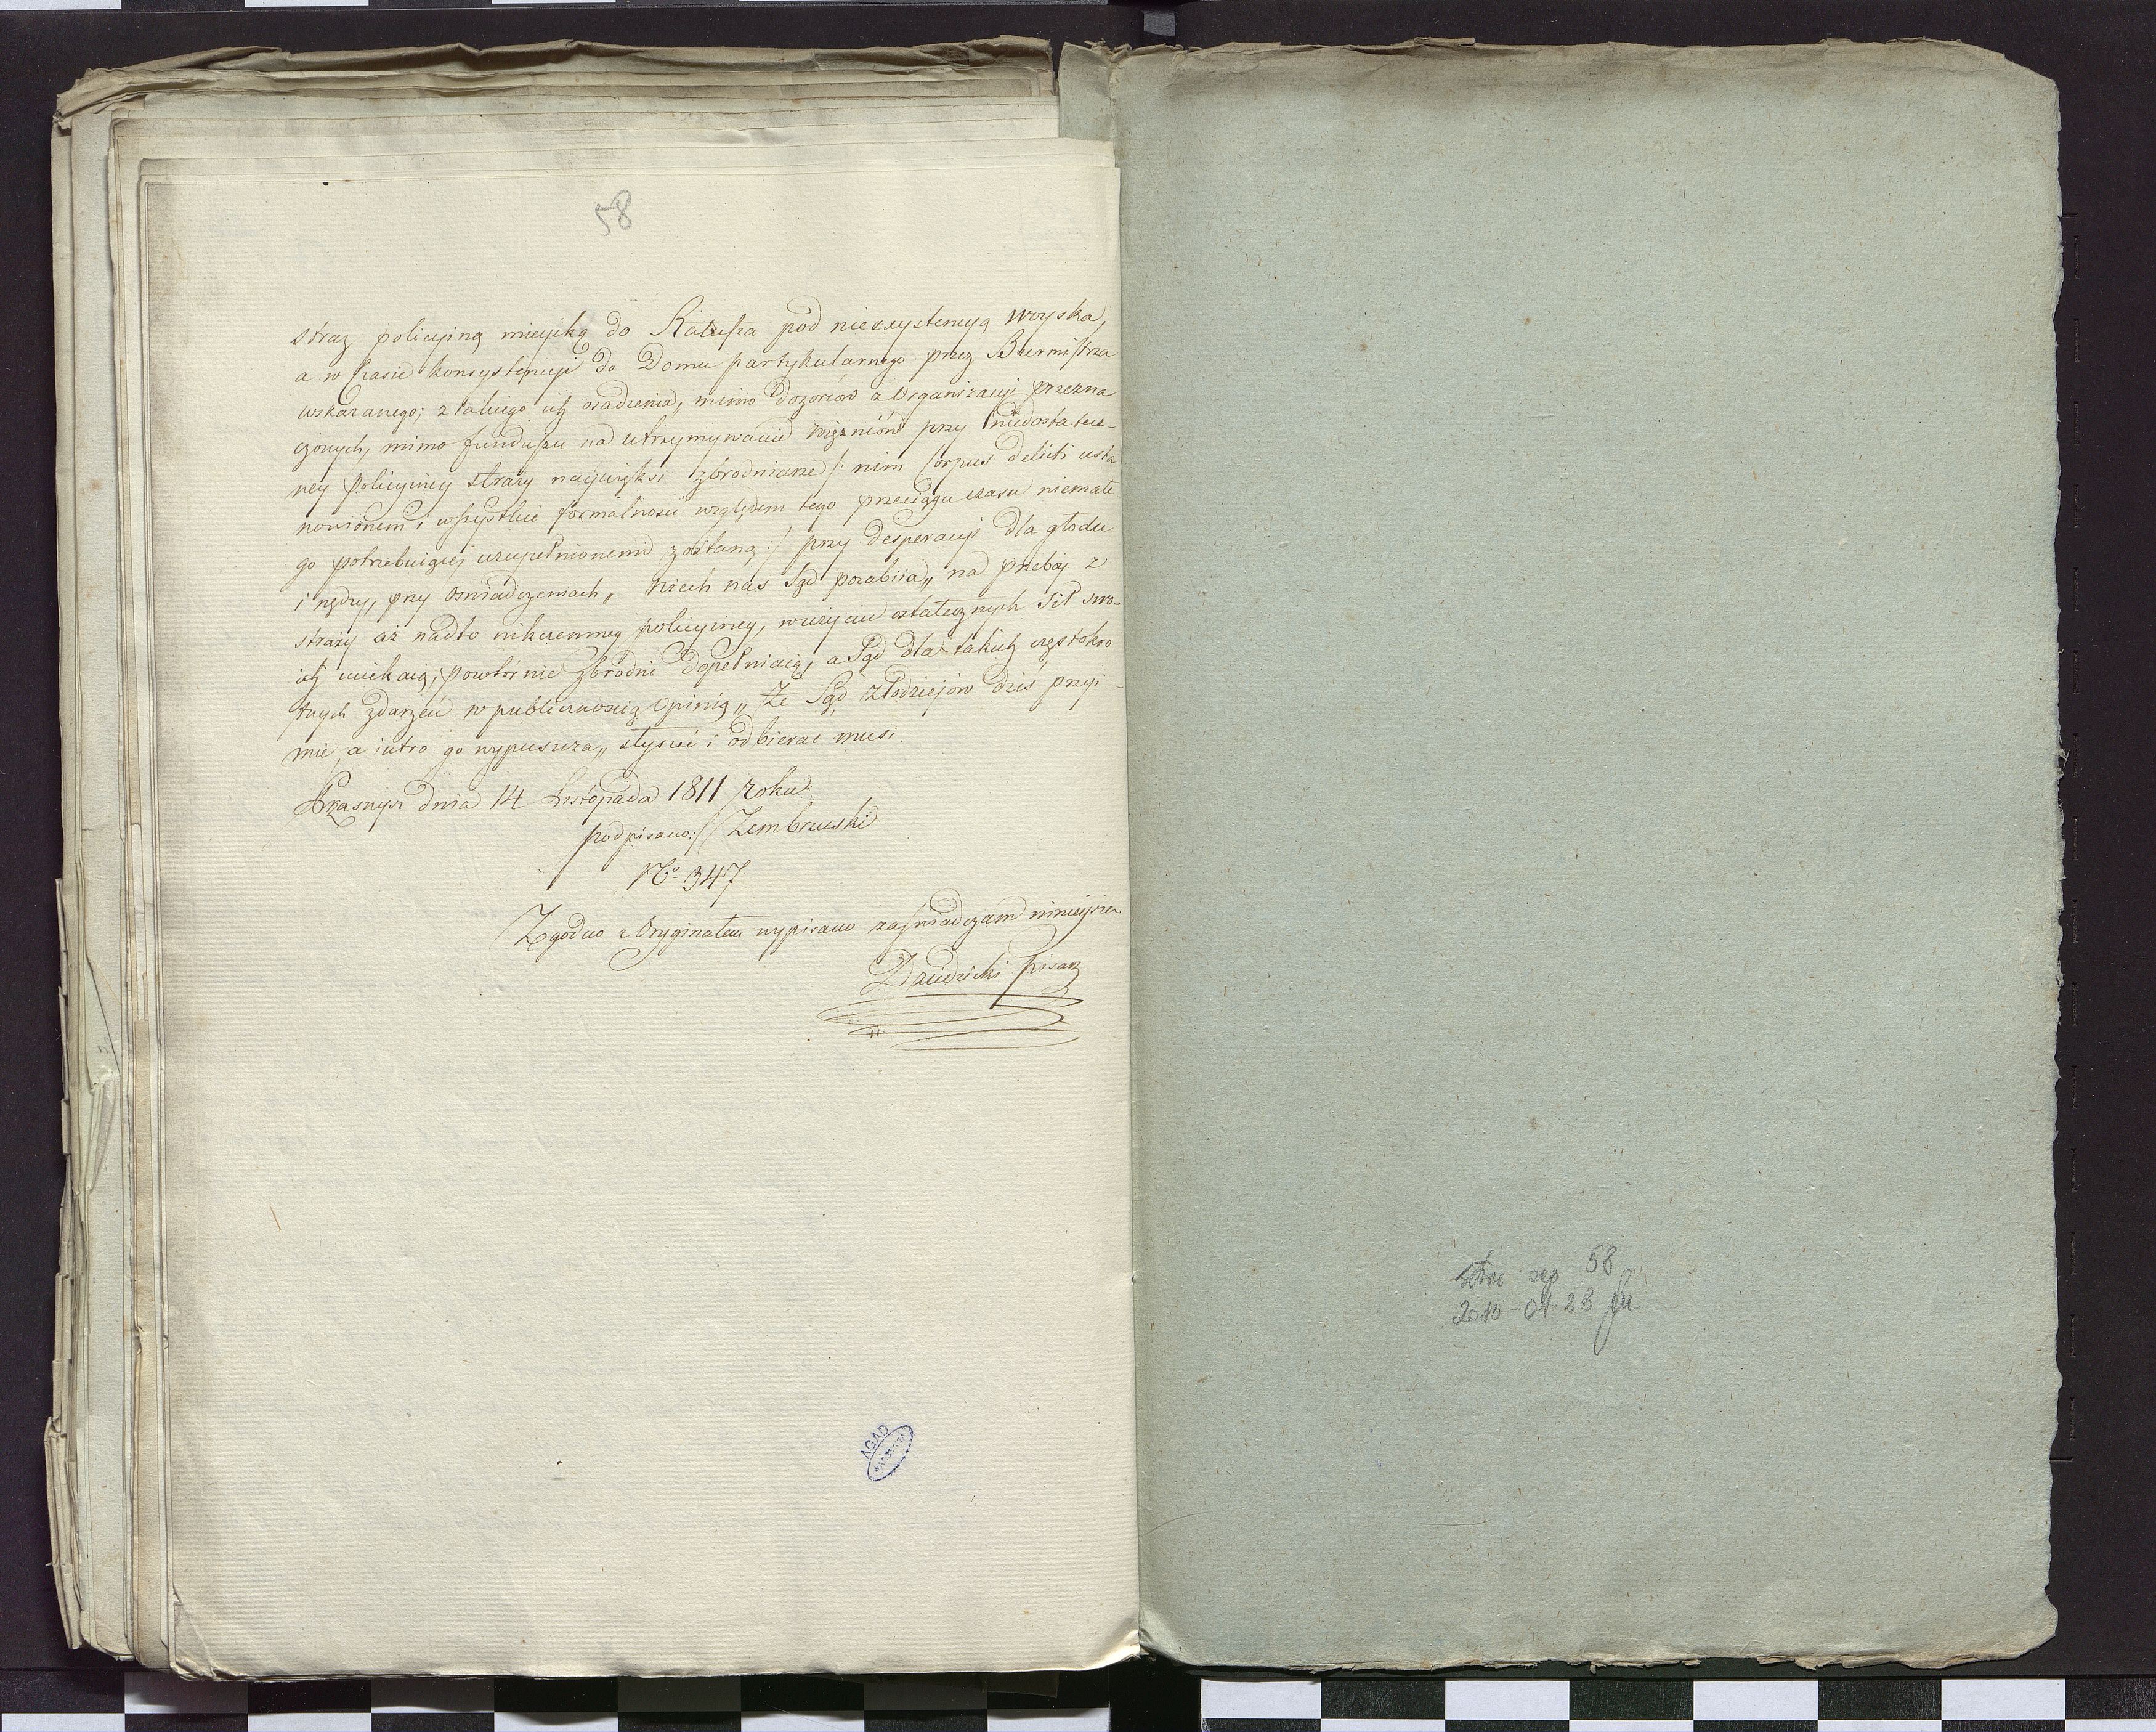 58
straz policyiną mieyską do Ratusza pod nieexystencyą woyska,
a w czasie konsystencyi do Domu partykularnego przez Burmistrza
wskazanego; z takiego ich osadzenia, mimo Dozorców z Organizacyi przezna
czonych, mimo funduszu na utrzymywanie więzniów przy niedostatecz-
ney policyiney straży naywięksi zbrodniarze /: nim Corpus delicti usta
nowionem i wszystkie formalności względem tego przeciągu czasu niemałe
go potrzebuiącej uzupełnionemi zostaną :/ przy desperacyi dla głodu
i nędzy, przy oswiadczeniach „ niech nas Sąd pozabiia „ na przebóy z
straży aż nadto nikczemney policyiney, w użyciu ostatecznych sił swo-
ich uciekaią, powtórnie zbrodni dopełniaią, a Sąd dla takich częstokro
tnych zdarzeń w publicznością opinią „ że Sąd złodziejów dziś przyi-
mie, a iutro go wypuszcza „ słyszeć i odbierac musi.
Przasnysz dnia 14 Listopada 1811 roku.
podpisano:/ Zembrzuski
No 347
Zgodno z Oryginałem wypisano zaswiadczam ninieysze
Dziedzicki Pisarz
AGAD
58
2013-04-23